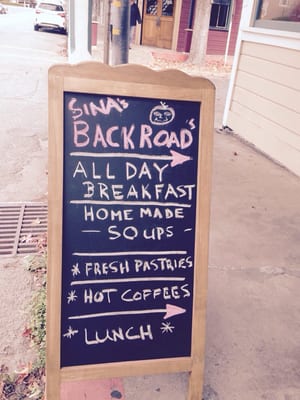 SINA's
BACKROAD's
ALL DAY
BREAKFAST
HOME MADE
- SOUPS -
* FRESH PASTRIES
* HOT COFFEES
* LUNCH *